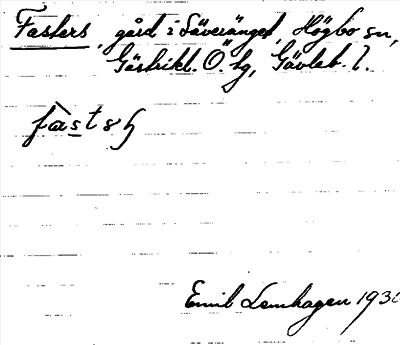 Fasters, gård i Säveränget, Högbo sn,
Gästrikl. Ö. hg, Gävleb. l.
fàstsh
Emil Lemhagen 193